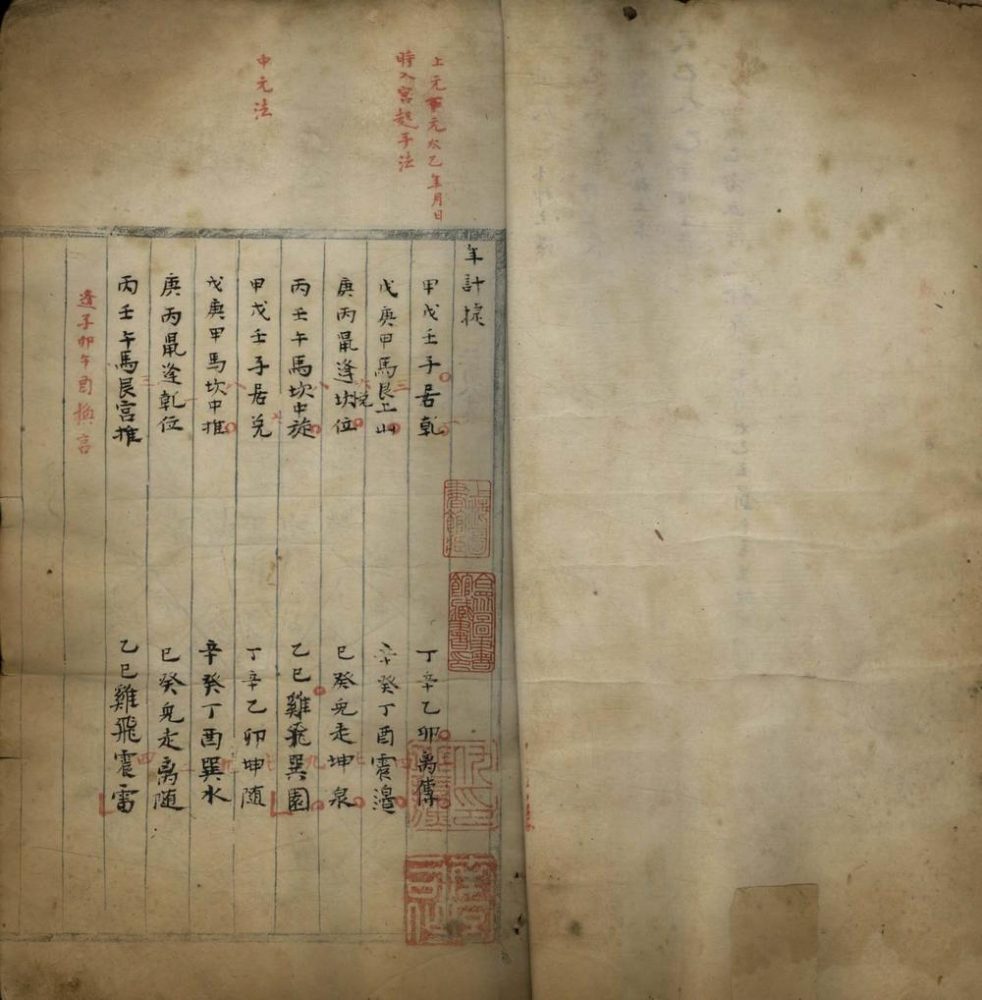 上元下元六乙年月日
時入宮起手法
中元法
年計捩
甲戊壬子居乾 丁辛乙卯禹傳
戊庚甲馬艮上山 辛癸丁酉震邉
庚丙鼠逢坎位 兌 巳癸兎走坤泉
丙壬午馬坎中旋 乙巳雞飛巽園
甲戊壬子居兌 丁辛乙卯坤随
戊庚甲馬坎中推 辛癸丁酉巽水
庚丙鼠逢乾位 巳癸兎走禹随
丙壬午馬艮宮推 乙巳雞飛震雷
逢子卯午酉換言